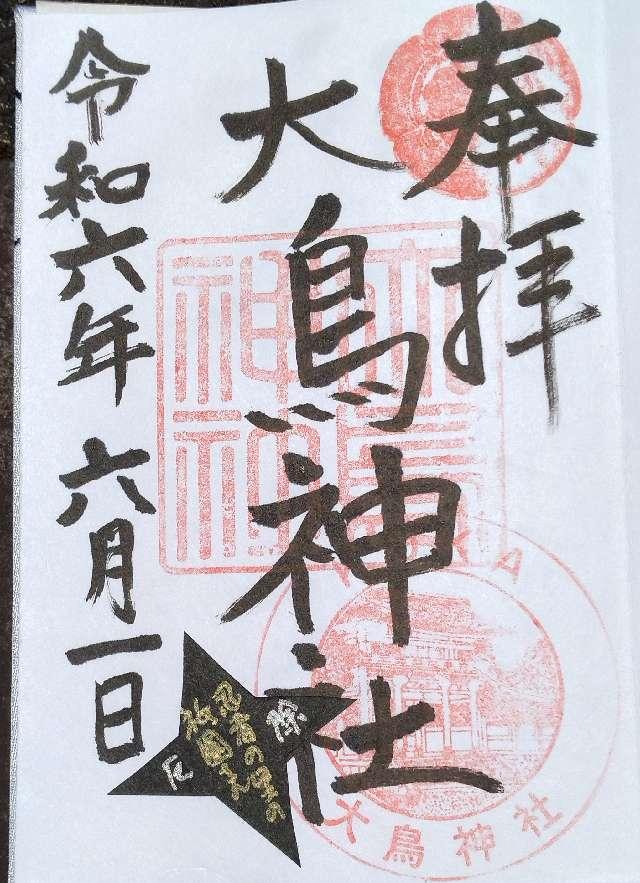 奉拝
大鳥神社
令和六年 六月一日
忍者の里の
祇園さん
大鳥神社